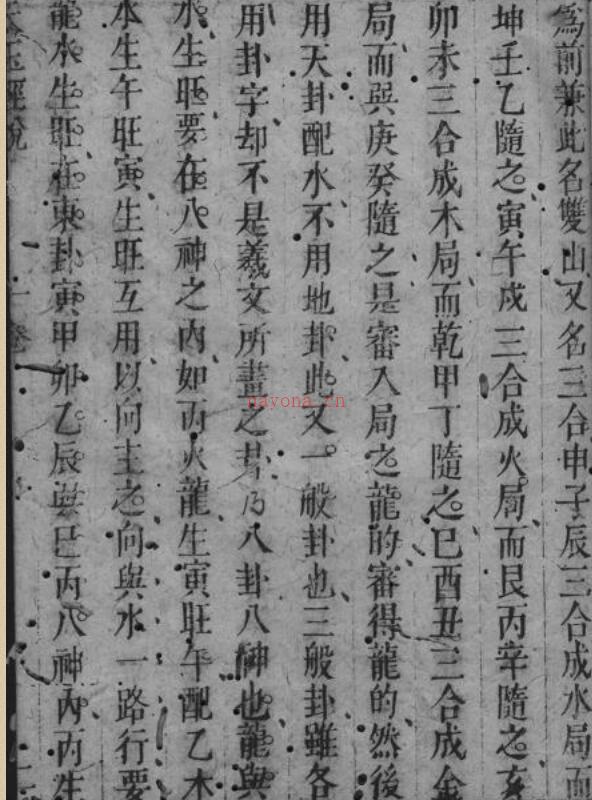 為前兼此名雙山又名三合申子辰三合成水局而
坤壬乙隨之寅午戌三合成火局而艮丙辛隨之亥
卯未三合成木局而乾甲丁隨之巳酉丑三合成金
局而巽庚癸隨之是審入局之龍的審得龍的然後
用天卦配水不用地卦此又一般卦也三般卦雖各
用卦字却不是羲文所畫之卦乃八卦八神也龍與
水生旺要在八神之內如丙火龍生寅旺午配乙木
水生午旺寅生旺互用以向主之向與水一路行要
龍水生旺在東卦寅甲卯乙辰巽巳丙八神內丙生
玉經說
nayona.cn